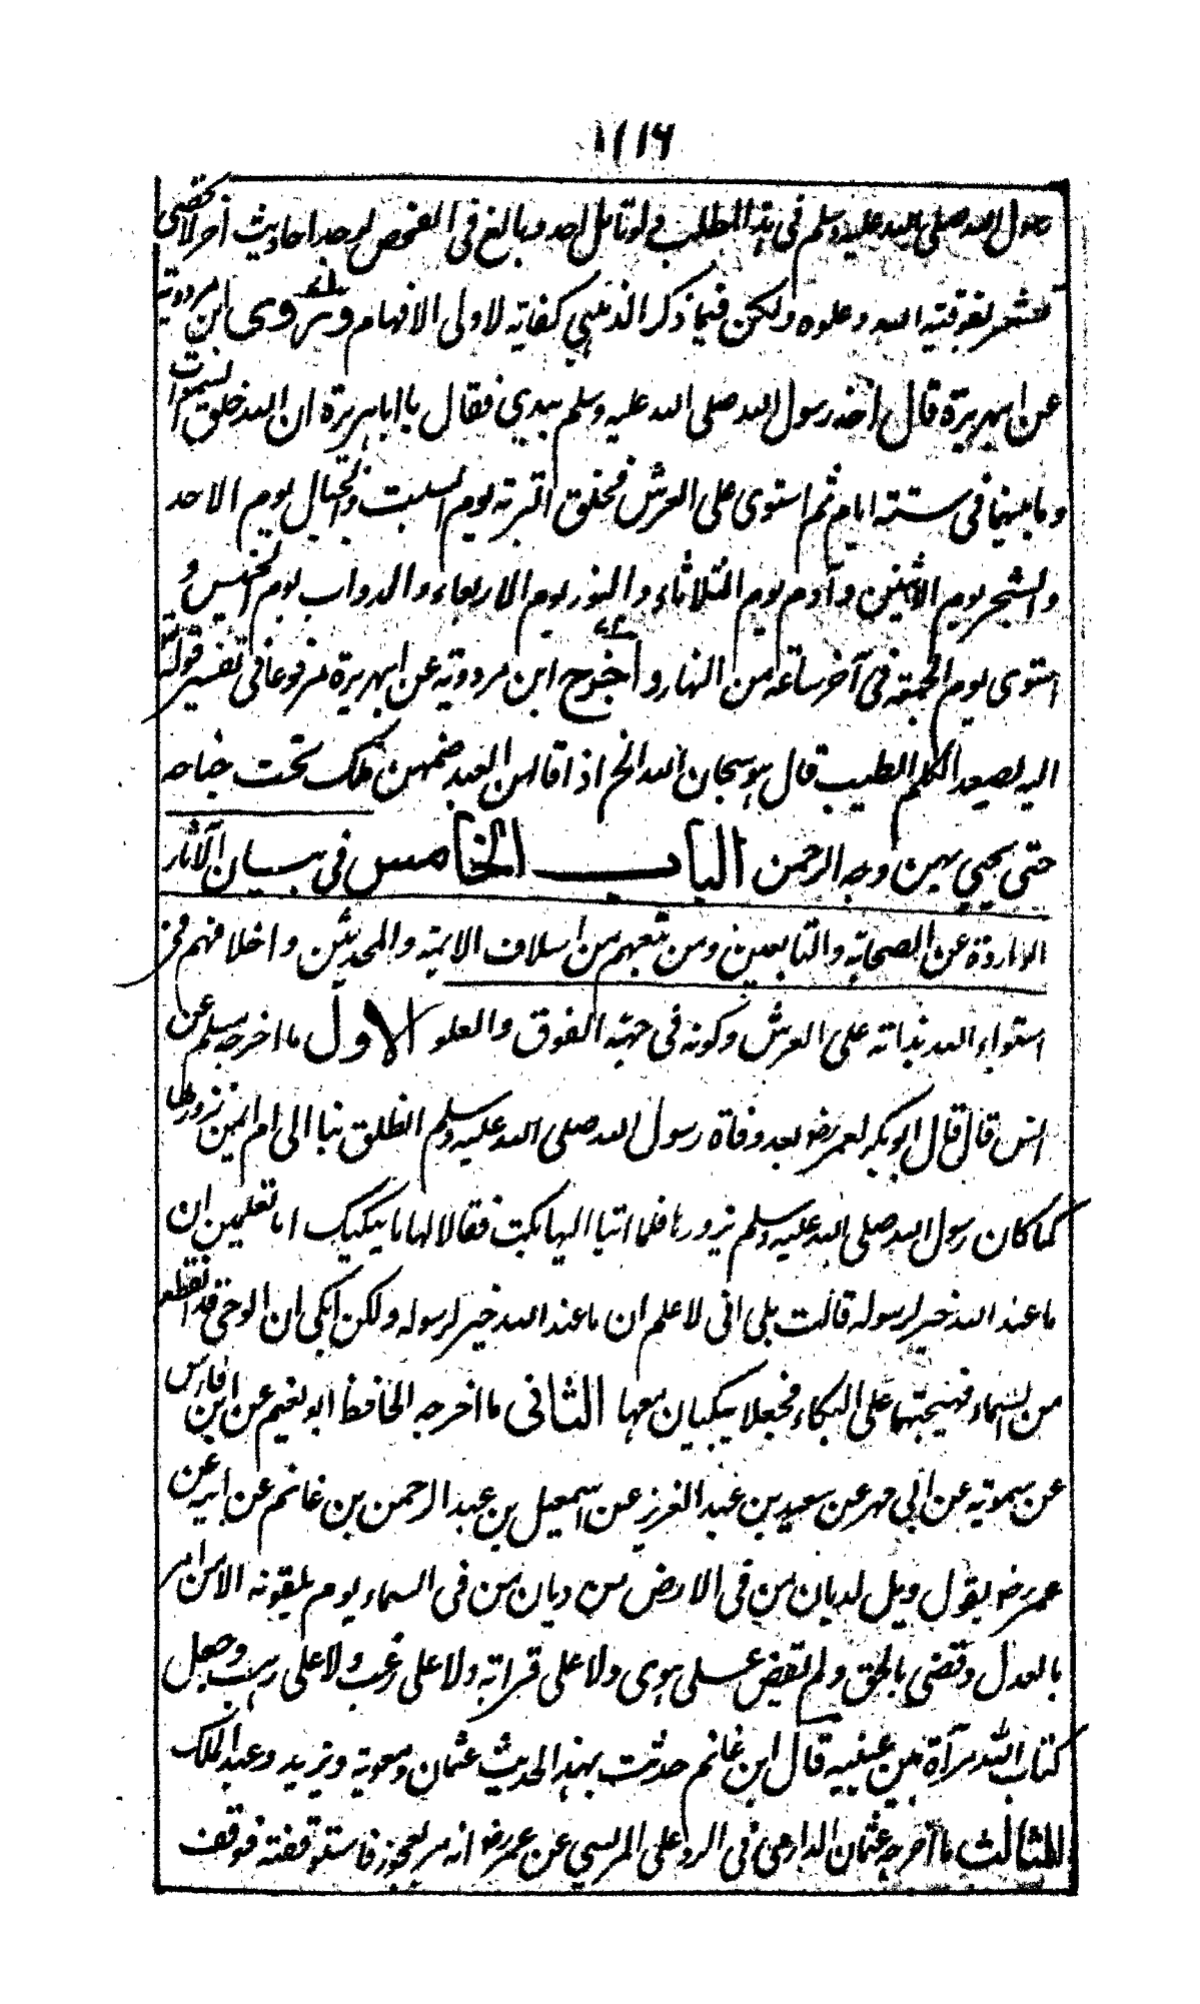 ١١١٦
رسول الله صلى الله عليه وسلم في هذا المطلب ولو تامل احد وبالغ في الفحص لوجد احاديث أخر لا تحصى
تشعر بفوقية الله وعلوه ولكن فيما ذكر الذهبي كفاية لاولى الافهام وروى ابن مردويه
عن ابى هريرة قال اخذ رسول الله صلى الله عليه وسلم بيدي فقال يا ابا هريرة ان الله خلق السموات
وما بينهما في ستة ايام ثم استوى على العرش فخلق التربة يوم السبت والجبال يوم الاحد
والشجر يوم الاثنين وآدم يوم الثلاثاء والنور يوم الاربعاء والدواب يوم الخميس و
استوى يوم الجمعة في آخر ساعة من النهار واخرج ابن مردويه عن ابى هريرة مرفوعا في تفسير قوله تعالى
اليه يصعد الكلم الطيب قال هو سبحان الله الخ اذا قالهن العبد ضمهن ملك تحت جناحه
حتى يحيي بهن وجه الرحمن الباب الخامس في بيان الآثار
الواردة عن الصحابة والتابعين ومن تبعهم من اسلاف الايمة والمحدثين واخلافهم في
استواء الله بذاته على العرش وكونه في جهة الفوق والعلو الاول ما اخرجه مسلم عن
انس قال قال ابو بكر لعمر رض بعد وفاة رسول الله صلى الله عليه وسلم انطلق بنا الى ام ايمن نزورها
كما كان رسول الله صلى الله عليه وسلم يزورها فلما اتيا اليها بكت فقالا لها ما يبكيك اما تعلمين ان
ما عند الله خير لرسوله قالت بلى انى لا علم ان ما عند الله خير لرسوله ولكن ابكى ان الوحى قد انقطع
من السماء فهيجتهما على البكاء فجعلا يبكيان معها الثانى ما اخرجه الحافظ ابو نعيم عن ابن فارس
عن سمويه عن ابى مهر عن سعيد بن عبد العزيز عن اسمعيل بن عبد الرحمن بن غانم عن ابيه عن
عمر رض يقول ويل لديان من في الارض من ديان من في السماء يوم يلقونه الا من امر
بالعدل وقضى بالحق ولم يقض على هوى ولا على قرابة ولا على رغب ولا على رهب وجعل
كتاب الله مرآة بين عينيه قال ابن غانم حدثت بهذا الحديث عثمان ومعوية ويزيد وعبد الملك
الثالث ما اخرجه عثمان الدارمى فى الرد على المريسي عن عمر رض انه مر بعجوز فاستوقفته فوقف